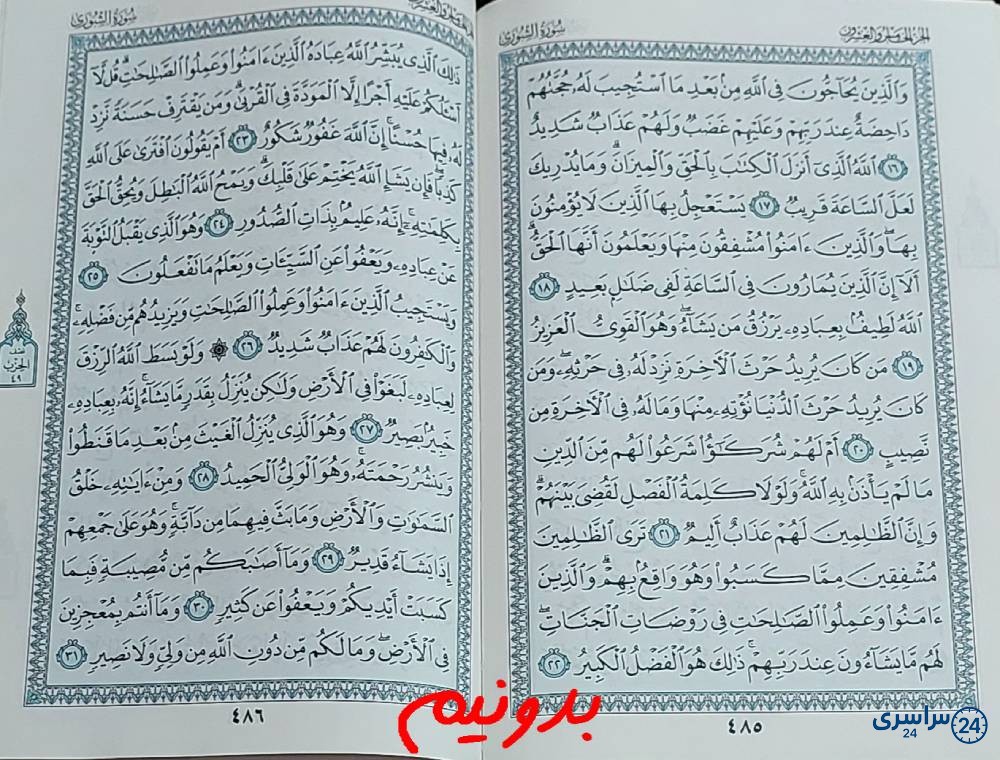 الجزء الخامس والعشرون
سورة الشورى
وَٱلَّذِينَ يُحَآجُّونَ فِى ٱللَّهِ مِنۢ بَعْدِ مَا ٱسْتُجِيبَ لَهُۥ حُجَّتُهُمْ
دَاحِضَةٌ عِندَ رَبِّهِمْ وَعَلَيْهِمْ غَضَبٌ وَلَهُمْ عَذَابٌ شَدِيدٌ
١٦ ٱللَّهُ ٱلَّذِىٓ أَنزَلَ ٱلْكِتَٰبَ بِٱلْحَقِّ وَٱلْمِيزَانَ ۗ وَمَا يُدْرِيكَ
لَعَلَّ ٱلسَّاعَةَ قَرِيبٌ ١٧ يَسْتَعْجِلُ بِهَا ٱلَّذِينَ لَا يُؤْمِنُونَ
بِهَا ۖ وَٱلَّذِينَ ءَامَنُوا۟ مُشْفِقُونَ مِنْهَا وَيَعْلَمُونَ أَنَّهَا ٱلْحَقُّ ۗ
أَلَآ إِنَّ ٱلَّذِينَ يُمَارُونَ فِى ٱلسَّاعَةِ لَفِى ضَلَٰلٍۭ بَعِيدٍ ١٨
ٱللَّهُ لَطِيفٌۢ بِعِبَادِهِۦ يَرْزُقُ مَن يَشَآءُ ۖ وَهُوَ ٱلْقَوِىُّ ٱلْعَزِيزُ
١٩ مَن كَانَ يُرِيدُ حَرْثَ ٱلْءَاخِرَةِ نَزِدْ لَهُۥ فِى حَرْثِهِۦ ۖ وَمَن
كَانَ يُرِيدُ حَرْثَ ٱلدُّنْيَا نُؤْتِهِۦ مِنْهَا وَمَا لَهُۥ فِى ٱلْءَاخِرَةِ مِن
نَّصِيبٍ ٢٠ أَمْ لَهُمْ شُرَكَٰٓؤُا۟ شَرَعُوا۟ لَهُم مِّنَ ٱلدِّينِ
مَا لَمْ يَأْذَنۢ بِهِ ٱللَّهُ ۚ وَلَوْلَا كَلِمَةُ ٱلْفَصْلِ لَقُضِىَ بَيْنَهُمْ ۗ
وَإِنَّ ٱلظَّٰلِمِينَ لَهُمْ عَذَابٌ أَلِيمٌ ٢١ تَرَى ٱلظَّٰلِمِينَ
مُشْفِقِينَ مِمَّا كَسَبُوا۟ وَهُوَ وَاقِعٌۢ بِهِمْ ۗ وَٱلَّذِينَ
ءَامَنُوا۟ وَعَمِلُوا۟ ٱلصَّٰلِحَٰتِ فِى رَوْضَاتِ ٱلْجَنَّاتِ ۖ
لَهُم مَّا يَشَآءُونَ عِندَ رَبِّهِمْ ۚ ذَٰلِكَ هُوَ ٱلْفَضْلُ ٱلْكَبِيرُ ٢٢
٤٨٥
الجزء الخامس والعشرون
سورة الشورى
ذَٰلِكَ ٱلَّذِى يُبَشِّرُ ٱللَّهُ عِبَادَهُ ٱلَّذِينَ ءَامَنُوا۟ وَعَمِلُوا۟ ٱلصَّٰلِحَٰتِ ۗ قُل لَّآ
أَسْـَٔلُكُمْ عَلَيْهِ أَجْرًا إِلَّا ٱلْمَوَدَّةَ فِى ٱلْقُرْبَىٰ ۗ وَمَن يَقْتَرِفْ حَسَنَةً نَّزِدْ
لَهُۥ فِيهَا حُسْنًا ۚ إِنَّ ٱللَّهَ غَفُورٌ شَكُورٌ ٢٣ أَمْ يَقُولُونَ ٱفْتَرَىٰ عَلَى ٱللَّهِ
كَذِبًا ۖ فَإِن يَشَإِ ٱللَّهُ يَخْتِمْ عَلَىٰ قَلْبِكَ ۗ وَيَمْحُ ٱللَّهُ ٱلْبَٰطِلَ وَيُحِقُّ ٱلْحَقَّ
بِكَلِمَٰتِهِۦٓ ۚ إِنَّهُۥ عَلِيمٌۢ بِذَاتِ ٱلصُّدُورِ ٢٤ وَهُوَ ٱلَّذِى يَقْبَلُ ٱلتَّوْبَةَ
عَنْ عِبَادِهِۦ وَيَعْفُوا۟ عَنِ ٱلسَّيِّـَٔاتِ وَيَعْلَمُ مَا تَفْعَلُونَ ٢٥
وَيَسْتَجِيبُ ٱلَّذِينَ ءَامَنُوا۟ وَعَمِلُوا۟ ٱلصَّٰلِحَٰتِ وَيَزِيدُهُم مِّن فَضْلِهِۦ ۚ
وَٱلْكَٰفِرُونَ لَهُمْ عَذَابٌ شَدِيدٌ ٢٦ ۞ وَلَوْ بَسَطَ ٱللَّهُ ٱلرِّزْقَ
لِعِبَادِهِۦ لَبَغَوْا۟ فِى ٱلْأَرْضِ وَلَٰكِن يُنَزِّلُ بِقَدَرٍ مَّا يَشَآءُ ۚ إِنَّهُۥ بِعِبَادِهِۦ
خَبِيرٌۢ بَصِيرٌ ٢٧ وَهُوَ ٱلَّذِى يُنَزِّلُ ٱلْغَيْثَ مِنۢ بَعْدِ مَا قَنَطُوا۟
وَيَنشُرُ رَحْمَتَهُۥ ۚ وَهُوَ ٱلْوَلِىُّ ٱلْحَمِيدُ ٢٨ وَمِنْ ءَايَٰتِهِۦ خَلْقُ
ٱلسَّمَٰوَٰتِ وَٱلْأَرْضِ وَمَا بَثَّ فِيهِمَا مِن دَآبَّةٍ ۚ وَهُوَ عَلَىٰ جَمْعِهِمْ
إِذَا يَشَآءُ قَدِيرٌ ٢٩ وَمَآ أَصَٰبَكُم مِّن مُّصِيبَةٍ فَبِمَا
كَسَبَتْ أَيْدِيكُمْ وَيَعْفُوا۟ عَن كَثِيرٍ ٣٠ وَمَآ أَنتُم بِمُعْجِزِينَ
فِى ٱلْأَرْضِ ۖ وَمَا لَكُم مِّن دُونِ ٱللَّهِ مِن وَلِىٍّ وَلَا نَصِيرٍ ٣١
٤٨٦
نصف
الحزب
٤٩
بدونیم
سراسری
24
24